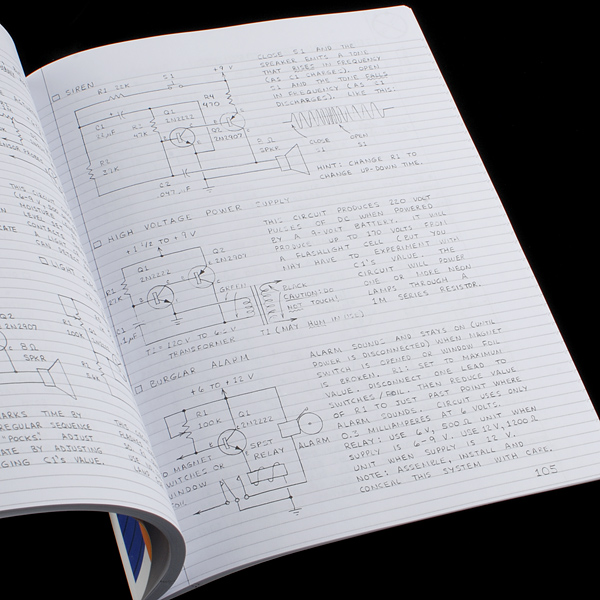 SIREN
R1 22K
S1
+9V
C1
R2
47K
Q1
2N2222
R4
470
Q2
2N2907
8Ω
SPKR
C2
.047µF
CLOSE S1 AND THE
SPEAKER EMITS A TONE
THAT RISES IN FREQUENCY
(AS C1 CHARGES). OPEN
S1 AND THE TONE FALLS
IN FREQUENCY (AS C1
DISCHARGES). LIKE THIS:
CLOSE
S1
OPEN
S1
HINT: CHANGE R1 TO
CHANGE UP-DOWN TIME.
HIGH VOLTAGE POWER SUPPLY
+1 1/2 TO +9V
Q1
2N2222
Q2
2N2907
R1
47K
C1
GREEN
BLACK
CAUTION: DO
NOT TOUCH!
T1 (MAY HUM IN USE)
T1 = 120V TO 6.3V
TRANSFORMER
THIS CIRCUIT PRODUCES 220 VOLT
PULSES OF DC WHEN POWERED
BY A 9-VOLT BATTERY. IT WILL
PRODUCE UP TO 170 VOLTS FROM
A FLASHLIGHT CELL (BUT YOU
MAY HAVE TO EXPERIMENT WITH
C1'S VALUE. THE
CIRCUIT WILL POWER
ONE OR MORE NEON
LAMPS THROUGH A
1M SERIES RESISTOR.
BURGLAR ALARM
+6 TO +12 V
R1
100K
Q1
2N2222
SPST
RELAY
ALARM
TO MAGNET
SWITCHES OR
WINDOW
FOIL
ALARM SOUNDS AND STAYS ON (UNTIL
POWER IS DISCONNECTED) WHEN MAGNET
SWITCH IS OPENED OR WINDOW FOIL
IS BROKEN. R1: SET TO MAXIMUM
VALUE. DISCONNECT ONE LEAD TO
SWITCHES/FOIL. THEN REDUCE VALUE
OF R1 TO JUST PAST POINT WHERE
ALARM SOUNDS. CIRCUIT USES ONLY
0.3 MILLIAMPERES AT 6 VOLTS.
RELAY: USE 6V, 500Ω UNIT WHEN
SUPPLY IS 6-9 V. USE 12V, 1200Ω
UNIT WHEN SUPPLY IS 12 V.
NOTE: ASSEMBLE, INSTALL AND
CONCEAL THIS SYSTEM WITH CARE.
105
LIGHT
R1
100K
2N2907
8Ω
SPKR
MARKS TIME BY
REGULAR SEQUENCE
"POCKS". ADJUST
RATE BY ADJUSTING
C1'S VALUE.